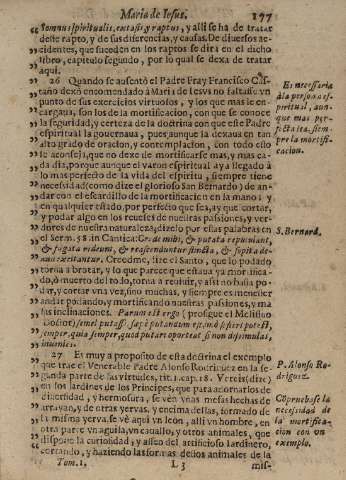 Maria de Iesus. 177
„ Somnus spiritualis, extasis, y raptus, y alli se ha de tratar
„ deste rapto, y de sus diferencias, y causas. De diversos ac-
„ cidentes, que suceden en los raptos se dira en el dicho
„ libro, capitulo segundo, por lo qual se dexa de tratar
„ aqui.
„ 26 Quando se ausentò el Padre Fray Francisco Cas-
„ taño dexò encomendado à Maria de Iesvs no faltasse vn
„ punto de sus exercicios virtuosos, y los que mas le en-
„ cargaua, son los de la mortificacion, con que se conoce
„ la seguridad, y certeza de la doctrina con que este Padre
„ espiritual la gouernaua, pues aunque la dexaua en tan
„ alto grado de oracion, y contemplacion, con todo esso
„ le aconseja, que no dexe de mortificarse mas, y mas ca-
„ da dia, porque aunque el varon espiritual aya llegado à
„ lo mas perfecto de la vida del espiritu, siempre tiene
„ necessidad (como dize el glorioso San Bernardo) de an-
„ dar con el escardillo de la mortificacion en la mano; y
„ en qualquier estado, por perfecto que sea, ay que cortar,
„ y podar algo en los reueses de nuestras passiones, y ver-
„ dores de nuestra naturaleza; dizelo por estas palabras en
„ el Serm. 58. in Cantica: Credé mihi, & putata repululant,
„ & fugata redeunt, & reaccenduntur extincta, & sopita de-
„ nuo excitantur. Creedme, dize el Santo, que lo podado
„ torna a brotar, y lo que parece que estaua ya mortifica-
„ do, ò muerto del todo, torna a reuiuir, y assi no basta po-
„ dar, y cortar vna vez, sino muchas, y siempre es menester
„ andar podando, y mortificando nuestras passiones, y ma-
„ las inclinaciones. Parum est ergo (prosigue el Melifluo
„ Doctor) semel putasse: sæpè putandum est, imò si fieri potest,
„ semper, quia semper, quod putari oporteat, si non dissimulas,
„ inuenies.
„ 27 Es muy a proposito de esta doctrina el exemplo
„ que trae el Venerable Padre Alonso Rodriguez en la se-
„ gunda parte de sus virtudes, tit. 1. cap. 18. Vereis (dize)
„ en los Iardines de los Principes, que para adornarlos de
„ diuersidad, y hermosura, se vèn vnas mesas hechas de
„ arrayan, y de otras yeruas, y encima dellas, formado de
„ la misma yerva se vè aqui vn leon, alli vn hombre, en
„ otra parte vn aguila, vn cauallo, y otros animales, que
„ dispone la curiosidad, y asseo del artificioso Iardinero,
„ cortando, y haziendo las formas destos animales de la
Tom. 1. L 3 mis-
Es necessaria
à la persona es-
piritual, aun-
que mas per-
fecta sea, siem-
pre la mortifi-
cacion.
S. Bernard.
P. Alonso Ro-
driguez.
Cõpruebase la
necessidad de
la mortifica-
cion con vn
exemplo.